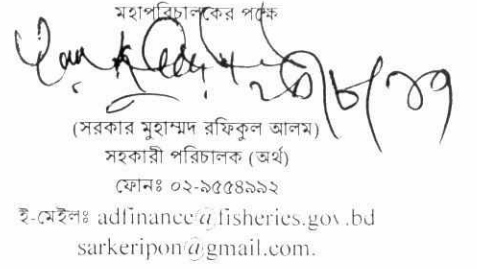 মহাপরিচালকের পক্ষে
(সরকার মুহাম্মদ রফিকুল আলম)
সহকারী পরিচালক (অর্থ)
ফোনঃ ০২-৯৫৫৪৯৯২
ই-মেইলঃ adfinance@fisheries.gov.bd
sarkeripon@gmail.com.